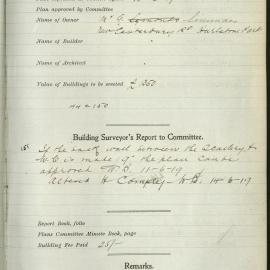 Plan approved by Committee
Name of Owner Mr G. Loveman
New Canterbury Rd Hurlstone Park
Name of Builder
Name of Architect
Value of Buildings to be erected £ 350
44 × 150
Building Surveyor's Report to Committee.
If the wall between the
W.C. is made of the plan can be
approved W.B. 11-6-19
W.B. 14-6-19
Report Book, folio
Plans Committee Minute Book, page
Building Fee Paid 25/-
Remarks.